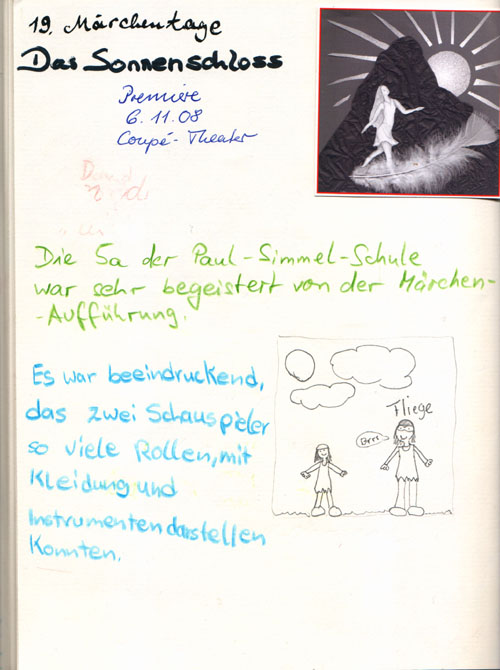 19. Märchentage
Das Sonnenschloss
Premiere
6.11.08
Coupé-Theater
Die 5a der Paul-Simmel-Schule
war sehr begeistert von der Märchen-
-Aufführung.
Es war beeindruckend,
das zwei Schauspieler
so viele Rollen, mit
Kleidung und
Instrumenten darstellen
Konnten.
Fliege
Brrr